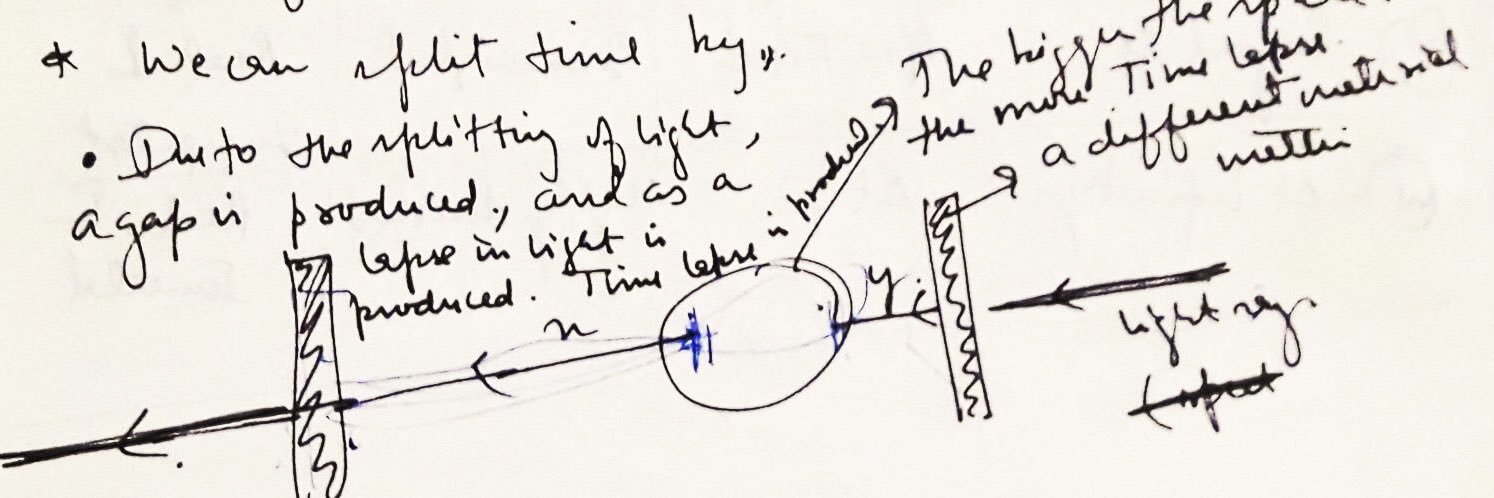 * We can split time by,,.
• Due to the splitting of light,
a gap is produced., and as a
lapse in light is
produced. Time lapse is produced
The bigger the
the more Time lapse.
a different material
x
y
light ray.